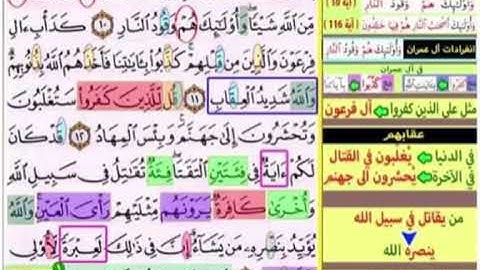 مِّنَ ٱللَّهِ شَيْـًٔا ۖ وَأُو۟لَـٰٓئِكَ هُمْ وَقُودُ ٱلنَّارِ ١٠ كَدَأْبِ ءَالِ
فِرْعَوْنَ وَٱلَّذِينَ مِن قَبْلِهِمْ ۚ كَذَّبُوا۟ بِـَٔايَـٰتِنَا فَأَخَذَهُمُ ٱللَّهُ بِذُنُوبِهِمْ ۗ
وَٱللَّهُ شَدِيدُ ٱلْعِقَابِ ١١ قُل لِّلَّذِينَ كَفَرُوا۟ سَتُغْلَبُونَ
وَتُحْشَرُونَ إِلَىٰ جَهَنَّمَ ۚ وَبِئْسَ ٱلْمِهَادُ ١٢ قَدْ كَانَ
لَكُمْ ءَايَةٌ فِى فِئَتَيْنِ ٱلْتَقَتَا ۖ فِئَةٌ تُقَـٰتِلُ فِى سَبِيلِ ٱللَّهِ
وَأُخْرَىٰ كَافِرَةٌ يَرَوْنَهُم مِّثْلَيْهِمْ رَأْىَ ٱلْعَيْنِ ۚ وَٱللَّهُ
يُؤَيِّدُ بِنَصْرِهِۦ مَن يَشَآءُ ۗ إِنَّ فِى ذَٰلِكَ لَعِبْرَةً لِّأُو۟لِى
وَأُولَـٰئِكَ هُمْ وَقُودُ النَّارِ (آية 10)
وَأُولَـٰئِكَ أَصْحَابُ النَّارِ (آية 116)
انفرادات آل عمران
في آل عمران
مثل على الذين كفروا آل فرعون
عقابهم
في الدنيا يُغلبون في القتال
في الآخرة يُحشرون الى جهنم
من يقاتل في سبيل الله
ينصره الله